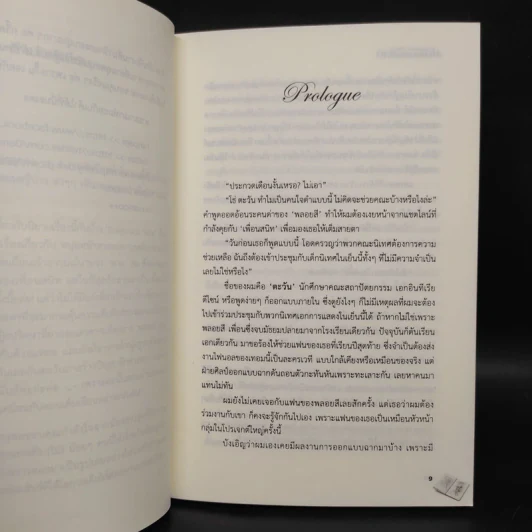 Prologue
“ประกวดเดือนงั้นเหรอ? ไม่เอา”
“โธ่ ตะวัน ทำไมเป็นคนใจดำแบบนี้ ไม่คิดจะช่วยคณะบ้างหรือไงล่ะ”
คำพูดออดอ้อนระคนด่าของ ‘พลอยสี’ ทำให้ผมต้องเงยหน้าจากแชตไลน์ที่
กำลังคุยกับ ‘เพื่อนสนิท’ เพื่อมองเธอให้เต็มสายตา
“วันก่อนเธอก็พูดแบบนี้ โอดครวญว่าพวกคณะนิเทศต้องการความ
ช่วยเหลือ ฉันถึงต้องเข้าประชุมกับเด็กนิเทศในเย็นนี้ทั้งๆ ที่ไม่มีความจำเป็น
เลยไม่ใช่หรือไง”
ชื่อของผมคือ ‘ตะวัน’ นักศึกษาคณะสถาปัตยกรรม เอกอินทีเรีย
ดีไซน์ หรือพูดง่ายๆ ก็ออกแบบภายใน ซึ่งดูยังไงๆ ก็ไม่มีเหตุผลที่ผมจะต้อง
ไปเข้าร่วมประชุมกับพวกนิเทศเอกการแสดงในเย็นนี้ได้ ถ้าหากไม่ใช่เพราะ
พลอยสี เพื่อนซึ่งจบมัธยมปลายมาจากโรงเรียนเดียวกัน ปัจจุบันก็ดันเรียน
เอกเดียวกัน มาขอร้องให้ช่วยแฟนของเธอที่เรียนปีสุดท้าย ซึ่งจำเป็นต้องส่ง
งานไฟนอลของเทอมนี้เป็นละครเวที แบบใกล้เคียงหรือเหมือนของจริง แต่
ฝ่ายศิลป์ออกแบบฉากดันถอนตัวกะทันหันเพราะทะเลาะกัน เลยหาคนมา
แทนไม่ทัน
ผมยังไม่เคยเจอกับแฟนของพลอยสีเลยสักครั้ง แต่เธอว่าผมต้อง
ร่วมงานกับเขา ก็คงจะรู้จักกันไปเอง เพราะแฟนของเธอเป็นเหมือนหัวหน้า
กลุ่มในโปรเจกต์ใหญ่ครั้งนี้
บังเอิญว่าผมเองเคยมีผลงานการออกแบบฉากมาบ้าง เพราะมี
9